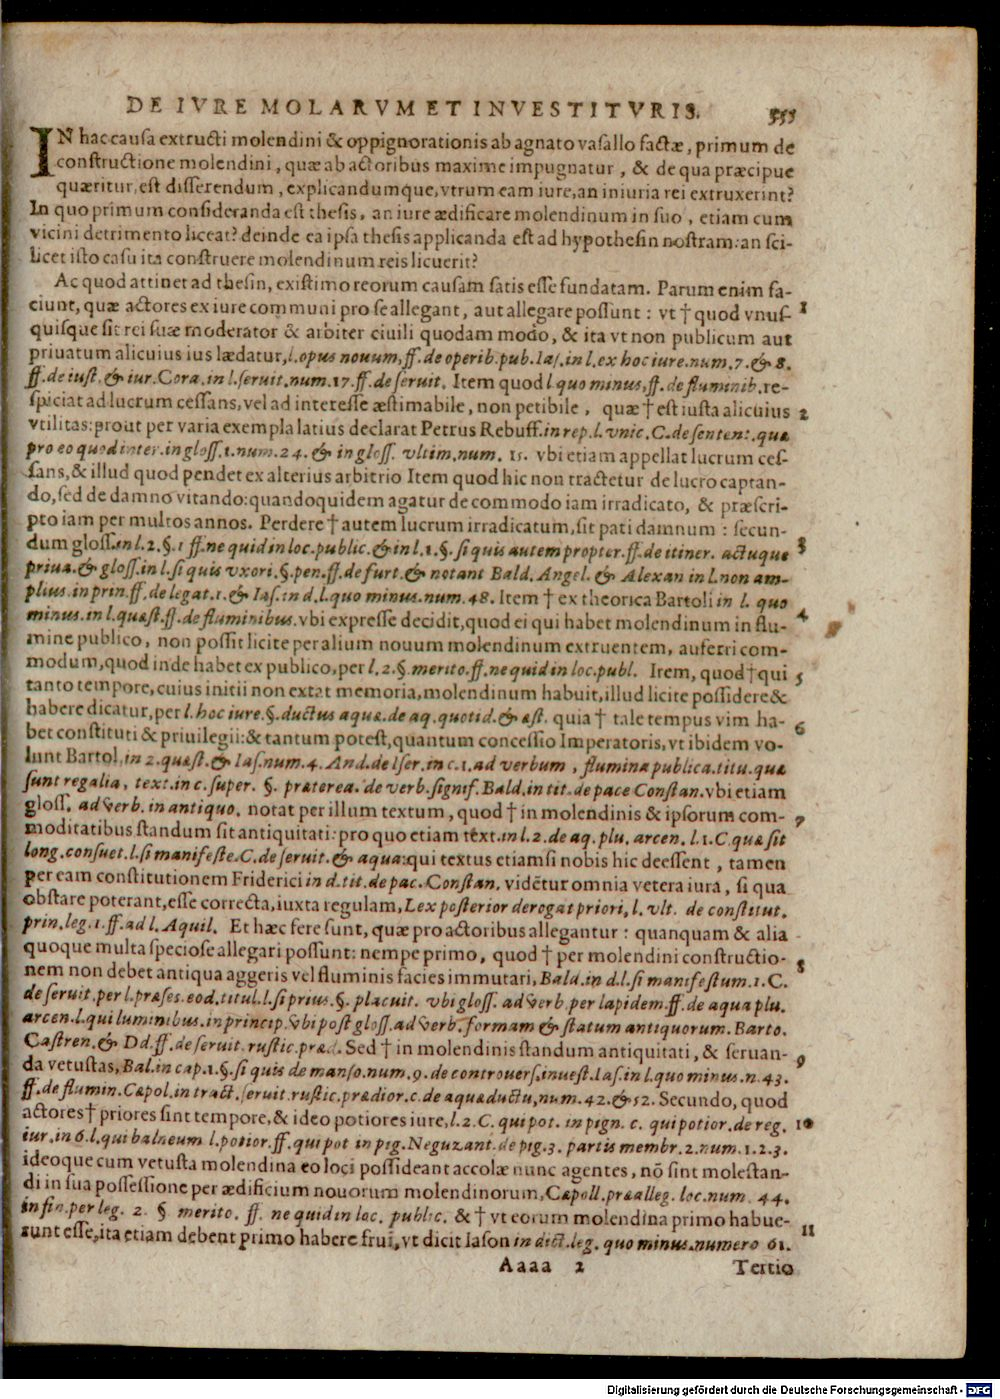 DE IVRE MOLARVM ET INVESTITVRIS. 555
IN hac causa extructi molendini & oppignorationis ab agnato vasallo factæ, primum de
constructione molendini, quæ ab actoribus maxime impugnatur, & de qua præcipue
quæritur, est disserendum, explicandumque, vtrum eam iure, an iniuria rei extruxerint?
In quo primum consideranda est thesis, an iure ædificare molendinum in suo, etiam cum
vicini detrimento liceat? deinde ea ipsa thesis applicanda est ad hypothesin nostram: an sci-
licet isto casu ita construere molendinum reis licuerit?
Ac quod attinet ad thesin, existimo reorum causam satis esse fundatam. Parum enim fa-
ciunt, quæ actores ex iure communi pro se allegant, aut allegare possunt: vt † quod vnus- 1
quisque sit rei suæ moderator & arbiter ciuili quodam modo, & ita vt non publicum aut
priuatum alicuius ius lædatur, l. opus nouum, ff. de operib. pub. Ias. in l. ex hoc iure. num. 7. & 8.
ff. de iust. & iur. Cora. in l. seruit. num. 17. ff. de seruit. Item quod l. quo minus, ff. de fluminib. re-
spiciat ad lucrum cessans, vel ad interesse æstimabile, non petibile, quæ † est iusta alicuius 2
vtilitas: prout per varia exempla latius declarat Petrus Rebuff. in rep. l. vnic. C. de senten. quæ
pro eo quod inter. in gloss. 1. num. 24. & in gloss. vltim. num. 15. vbi etiam appellat lucrum ces-
sans, & illud quod pendet ex alterius arbitrio Item quod hic non tractetur de lucro captan-
do, sed de damno vitando: quandoquidem agatur de commodo iam irradicato, & præscri-
pto iam per multos annos. Perdere † autem lucrum irradicatum, sit pati damnum: secun-
dum gloss. in l. 2. §. 1 ff. ne quid in loc. public. & in l. 1. §. si quis autem propter. ff. de itiner. actuque 3
priua. & gloss. in l. si quis vxori. §. pen. ff. de furt. & notant Bald. Angel. & Alexan in l. non am-
plius. in prin. ff. de legat. 1. & Ias. in d. l. quo minus. num. 48. Item † ex theorica Bartoli in l. quo
minus. in l. quæst. ff. de fluminibus. vbi expresse decidit, quod ei qui habet molendinum in flu- 4
mine publico, non possit licite per alium nouum molendinum extruentem, auferri com-
modum, quod inde habet ex publico, per l. 2. §. merito. ff. ne quid in loc. publ. Irem, quod † qui 5
tanto tempore, cuius initii non extat memoria, molendinum habuit, illud licite possidere &
habere dicatur, per l. hoc iure. §. ductus aquæ. de aq. quotid. & æst. quia † tale tempus vim ha- 6
bet constituti & priuilegii: & tantum potest, quantum concessio Imperatoris, vt ibidem vo-
lunt Bartol. in 2. quæst. & Ias. num. 4. And. de Iser. in c. 1. ad verbum, flumina publica. titu. quæ
sunt regalia, text. in c. super. §. præterea. de verb. signif. Bald. in tit. de pace Constan. vbi etiam
gloss. ad verb. in antiquo. notat per illum textum, quod † in molendinis & ipsorum com- 7
moditatibus standum sit antiquitati: pro quo etiam text. in l. 2. de aq. plu. arcen. l. 1. C. quæ sit
long. consuet. l. si manifeste. C. de seruit. & aqua: qui textus etiamsi nobis hic deessent, tamen
per eam constitutionem Friderici in d. tit. de pac. Constan. vidẽtur omnia vetera iura, si qua
obstare poterant, esse correcta, iuxta regulam, Lex posterior derogat priori, l. vlt. de constitut.
prin. leg. 1. ff. ad l. Aquil. Et hæc fere sunt, quæ pro actoribus allegantur: quanquam & alia
quoque multa speciose allegari possunt: nempe primo, quod † per molendini constructio- 8
nem non debet antiqua aggeris vel fluminis facies immutari, Bald. in d. l. si manifestum. 1. C.
de seruit. per l. præses. eod. titul. l. si prius. §. placuit. vbi gloss. ad verb. per lapidem. ff. de aqua plu.
arcen. l. qui luminibus. in princip. vbi post gloss. ad verb. formam & statum antiquorum. Barto.
Castren. & Dd. ff. de seruit. rustic. præd. Sed † in molendinis standum antiquitati, & seruan- 9
da vetustas, Bal. in cap. 1. §. si quis de manso. num. 9. de controuers. inuest. Ias. in l. quo minus. n. 43.
ff. de flumin. Cæpol. in tract. seruit. rustic. prædior. c. de aquæductu, num. 42. & 52. Secundo, quod
actores † priores sint tempore, & ideo potiores iure, l. 2. C. qui pot. in pign. c. qui potior. de reg. 10
iur. in 6. l. qui balneum l. potior. ff. qui pot in pig. Neguzant. de pig. 3. partis membr. 2. num. 1. 2. 3.
ideoque cum vetusta molendina eo loci possideant accolæ nunc agentes, nõ sint molestan-
di in sua possessione per ædificium nouorum molendinorum, Cæpoll. præalleg. loc. num. 44.
in fin. per leg. 2. § merito. ff. ne quid in loc. public. & † vt eorum molendina primo habue- 11
runt esse, ita etiam debent primo habere frui, vt dicit Iason in dict. leg. quo minus. numero 61.
Aaaa 2 Tertio
Digitalisierung gefördert durch die Deutsche Forschungsgemeinschaft - DFG